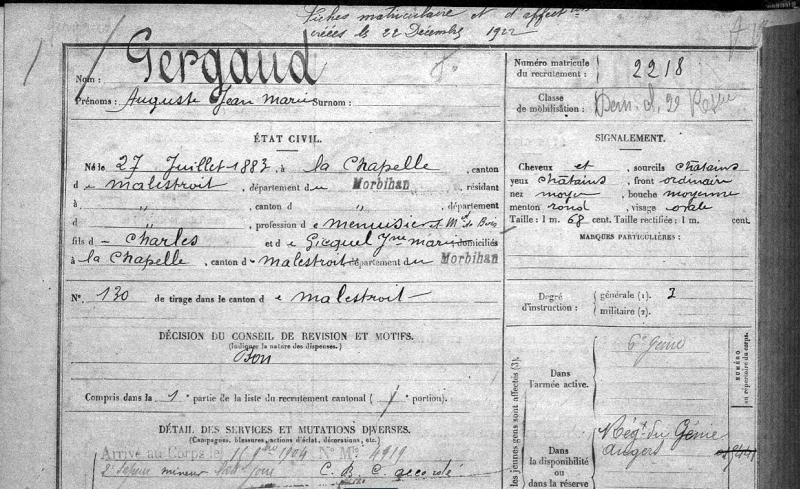 Fiches matriculaire et d'affect
créées le 22 Décembre 1922
Nom : Gergaud
Prénoms : Auguste Jean Marie Surnom :
ÉTAT CIVIL.
Né le 27 Juillet 1883, à la Chapelle, canton
d e malestroit, département du Morbihan, résidant
à " , canton d " , département
d " , profession d e menuisier et Md de Bois
fils d e Charles et d e Gicquel Jne marie domiciliés
à la Chapelle, canton d e malestroit département du Morbihan
N°. 130 de tirage dans le canton d e malestroit
DÉCISION DU CONSEIL DE REVISION ET MOTIFS.
(Indiquer la nature des dispenses.)
Bon
Compris dans la 1e partie de la liste du recrutement cantonal ( portion).
DÉTAIL DES SERVICES ET MUTATIONS DIVERSES.
(Campagnes, blessures, actions d'éclat, décorations, etc.)
Arrivé au Corps le 16 9bre 1904 N° Mle 4919
2e Sapeur mineur dudit jour C. B. C. accordé
Numéro matricule
du recrutement : 2218
Classe
de mobilisation :
SIGNALEMENT.
Cheveux et sourcils châtains
yeux châtains, front ordinaire
nez moyen, bouche moyenne
menton rond, visage ovale
Taille : 1 m. 68 cent. Taille rectifiée : 1 m. cent.
MARQUES PARTICULIÈRES :
Degré
d'instruction :
générale (1). 3
militaire (2).
les jeunes gens sont affectés (3).
Dans
l'armée active.
6e Génie
NUMÉRO
au répertoire du corps.
Dans
la disponibilité
ou
dans la réserve
Régt du Génie
Angers